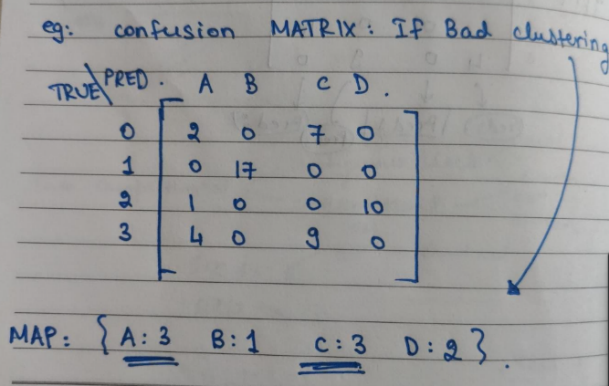 eg: confusion MATRIX: If Bad clustering
TRUE\PRED. A B C D.
0 2 0 7 0
1 0 17 0 0
2 1 0 0 10
3 4 0 9 0
MAP: { A:3 B:1 C:3 D:2 }.